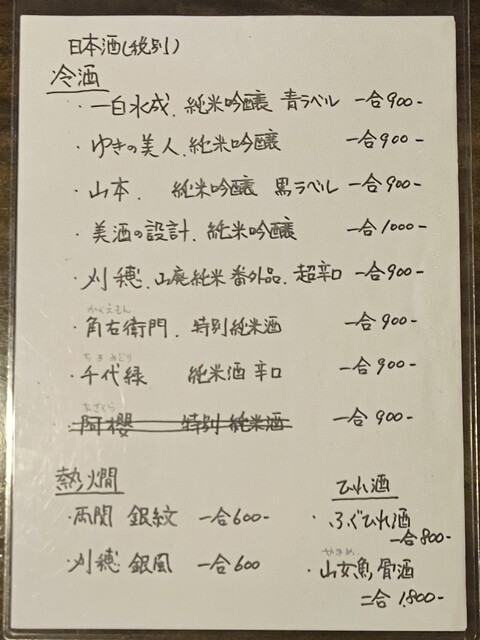 日本酒(税別)
冷酒
・一白水成. 純米吟醸 青ラベル 一合900-
・ゆきの美人. 純米吟醸 一合900-
・山本. 純米吟醸 黒ラベル 一合900-
・美酒の設計. 純米吟醸 一合1000-
・刈穂. 山廃純米 番外品. 超辛口 一合900-
かくえもん
・角右衛門. 特別純米酒 一合900-
ちよみどり
・千代緑 純米酒 辛口 一合900-
あざくら
・阿櫻 特別純米酒 一合900-
熱燗
・両関 銀紋 一合600-
・刈穂 銀風 一合600
ひれ酒
・ふぐひれ酒
一合800-
やまめ
・山女魚骨酒
二合1,800-